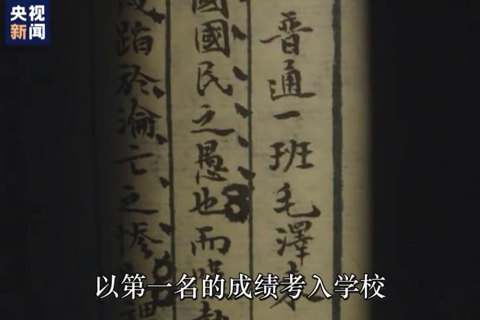 央视新闻
普通一班毛澤東
國國民之愚也而嘆執
蹈於淪亡之慘
以第一名的成绩考入学校